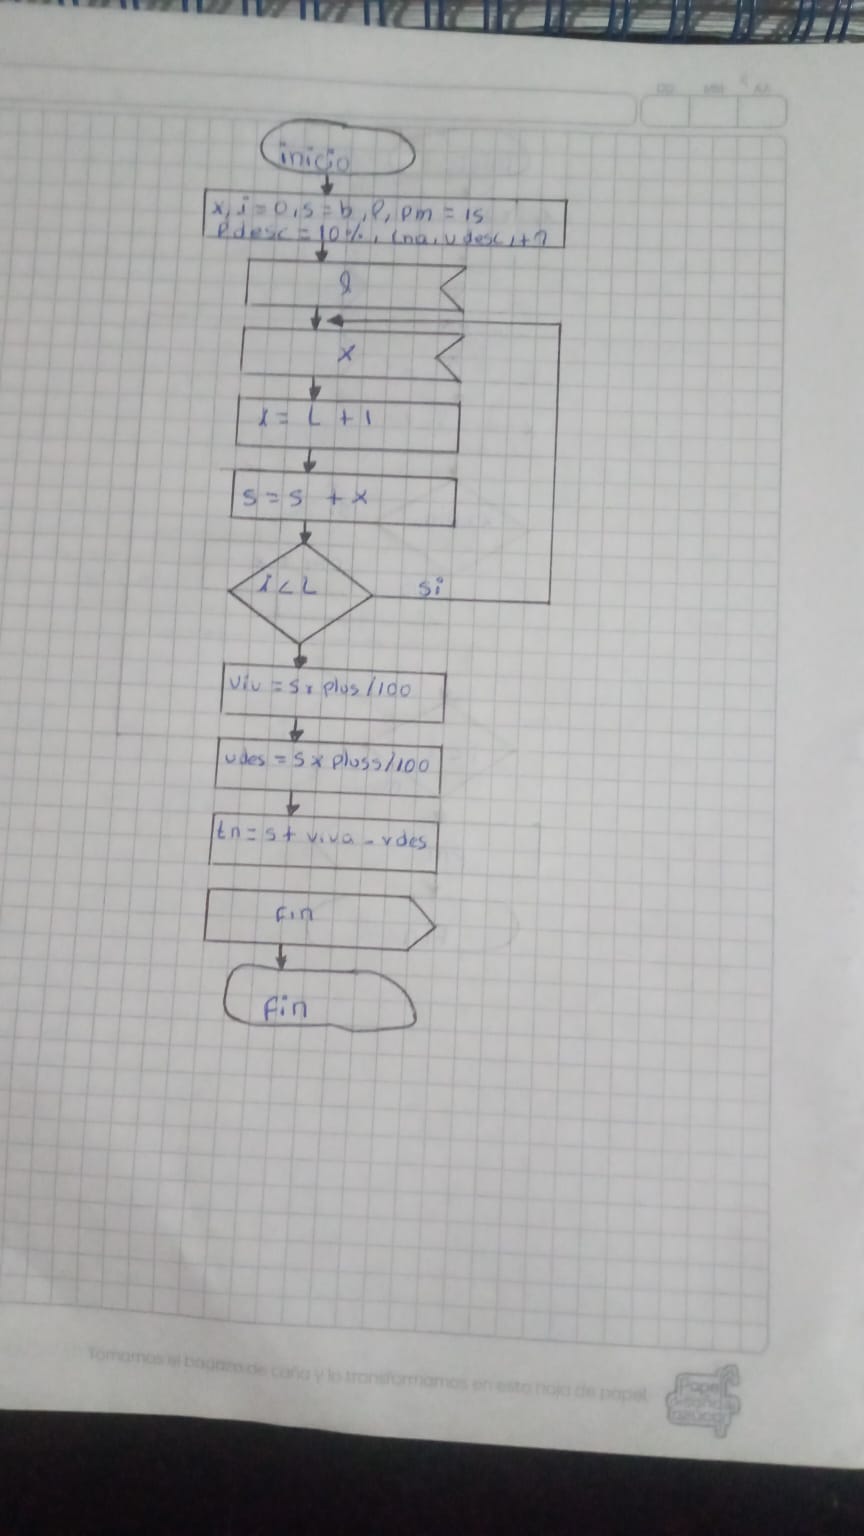 inicio
x, i = 0, s = b, l, pm = 15
Pdesc = 10%, vdesc, t
l
x
i = L + 1
s = s + x
i < L
si
viv = s x plus / 100
vdes = s x pluss / 100
tn = s + viva - vdes
fin
fin
Tomamos el bagazo de caña y lo transformamos en esta hoja de papel